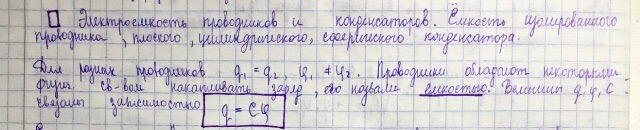 Электроемкость проводников и конденсаторов. Ёмкость изолированного
проводника, плоского, цилиндрического, сферического конденсатора.
Для разных проводников q₁ = q₂, φ₁ ≠ φ₂. Проводники обладают некоторыми
физич св-вом накапливать заряд, его назвали емкостью. Величины q, φ, C
связаны зависимостью q = Cφ